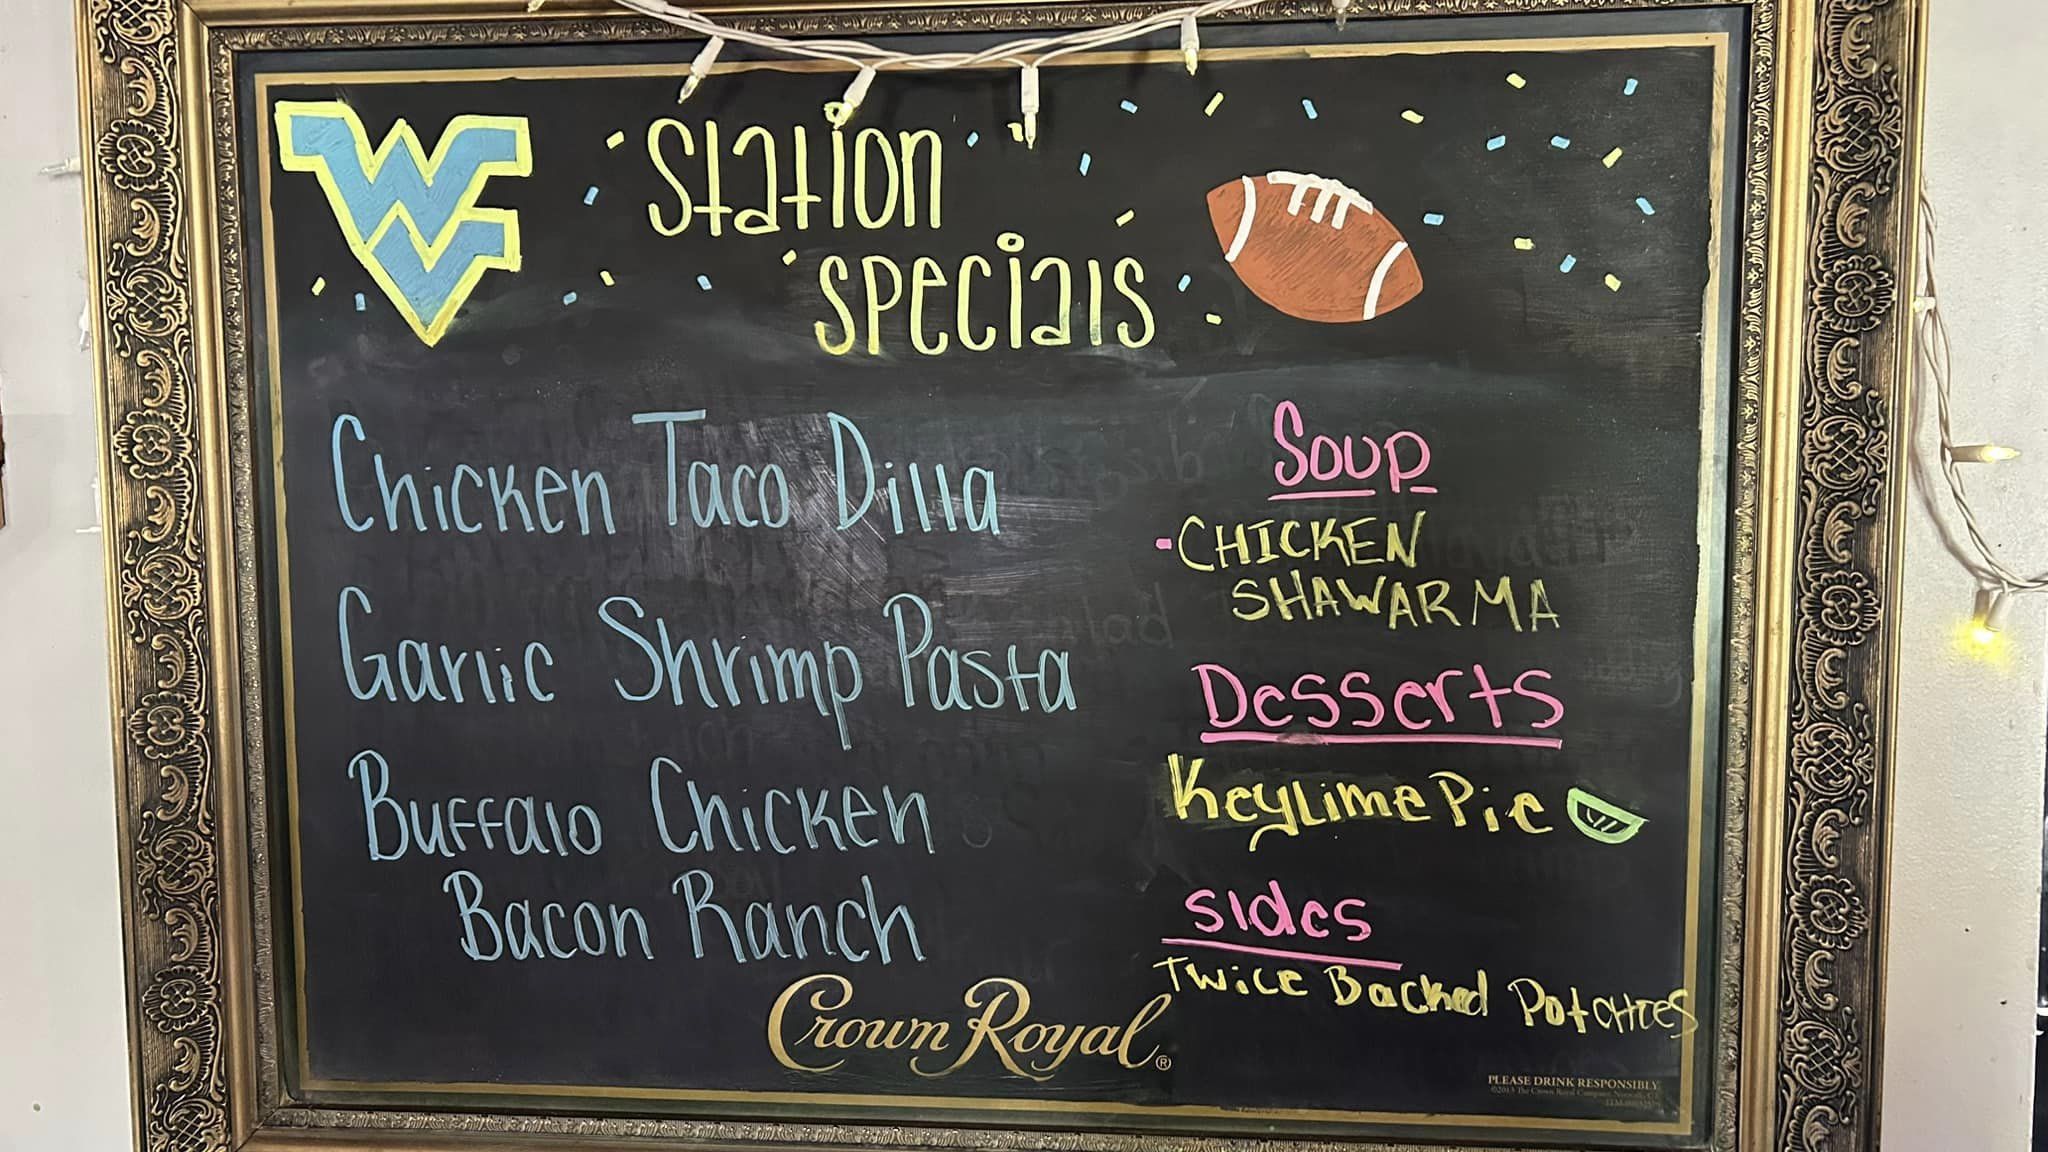 WV
Station
Specials
Chicken Taco Dilla
Garlic Shrimp Pasta
Buffalo Chicken
Bacon Ranch
Soup
• CHICKEN
SHAWARMA
Desserts
Keylime Pie
Sides
Twice Backed Potatoes
Crown Royal®
PLEASE DRINK RESPONSIBLY